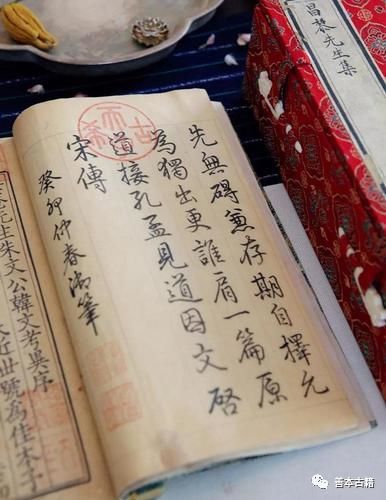 昌黎先生集
先無碍兼存期自擇允
為獨出更誰肩一篇原
道接孔孟見道因文啓
宋傳
癸卯仲春御筆
先生朱文公韓文考異序
近世號爲佳本予
善本古籍